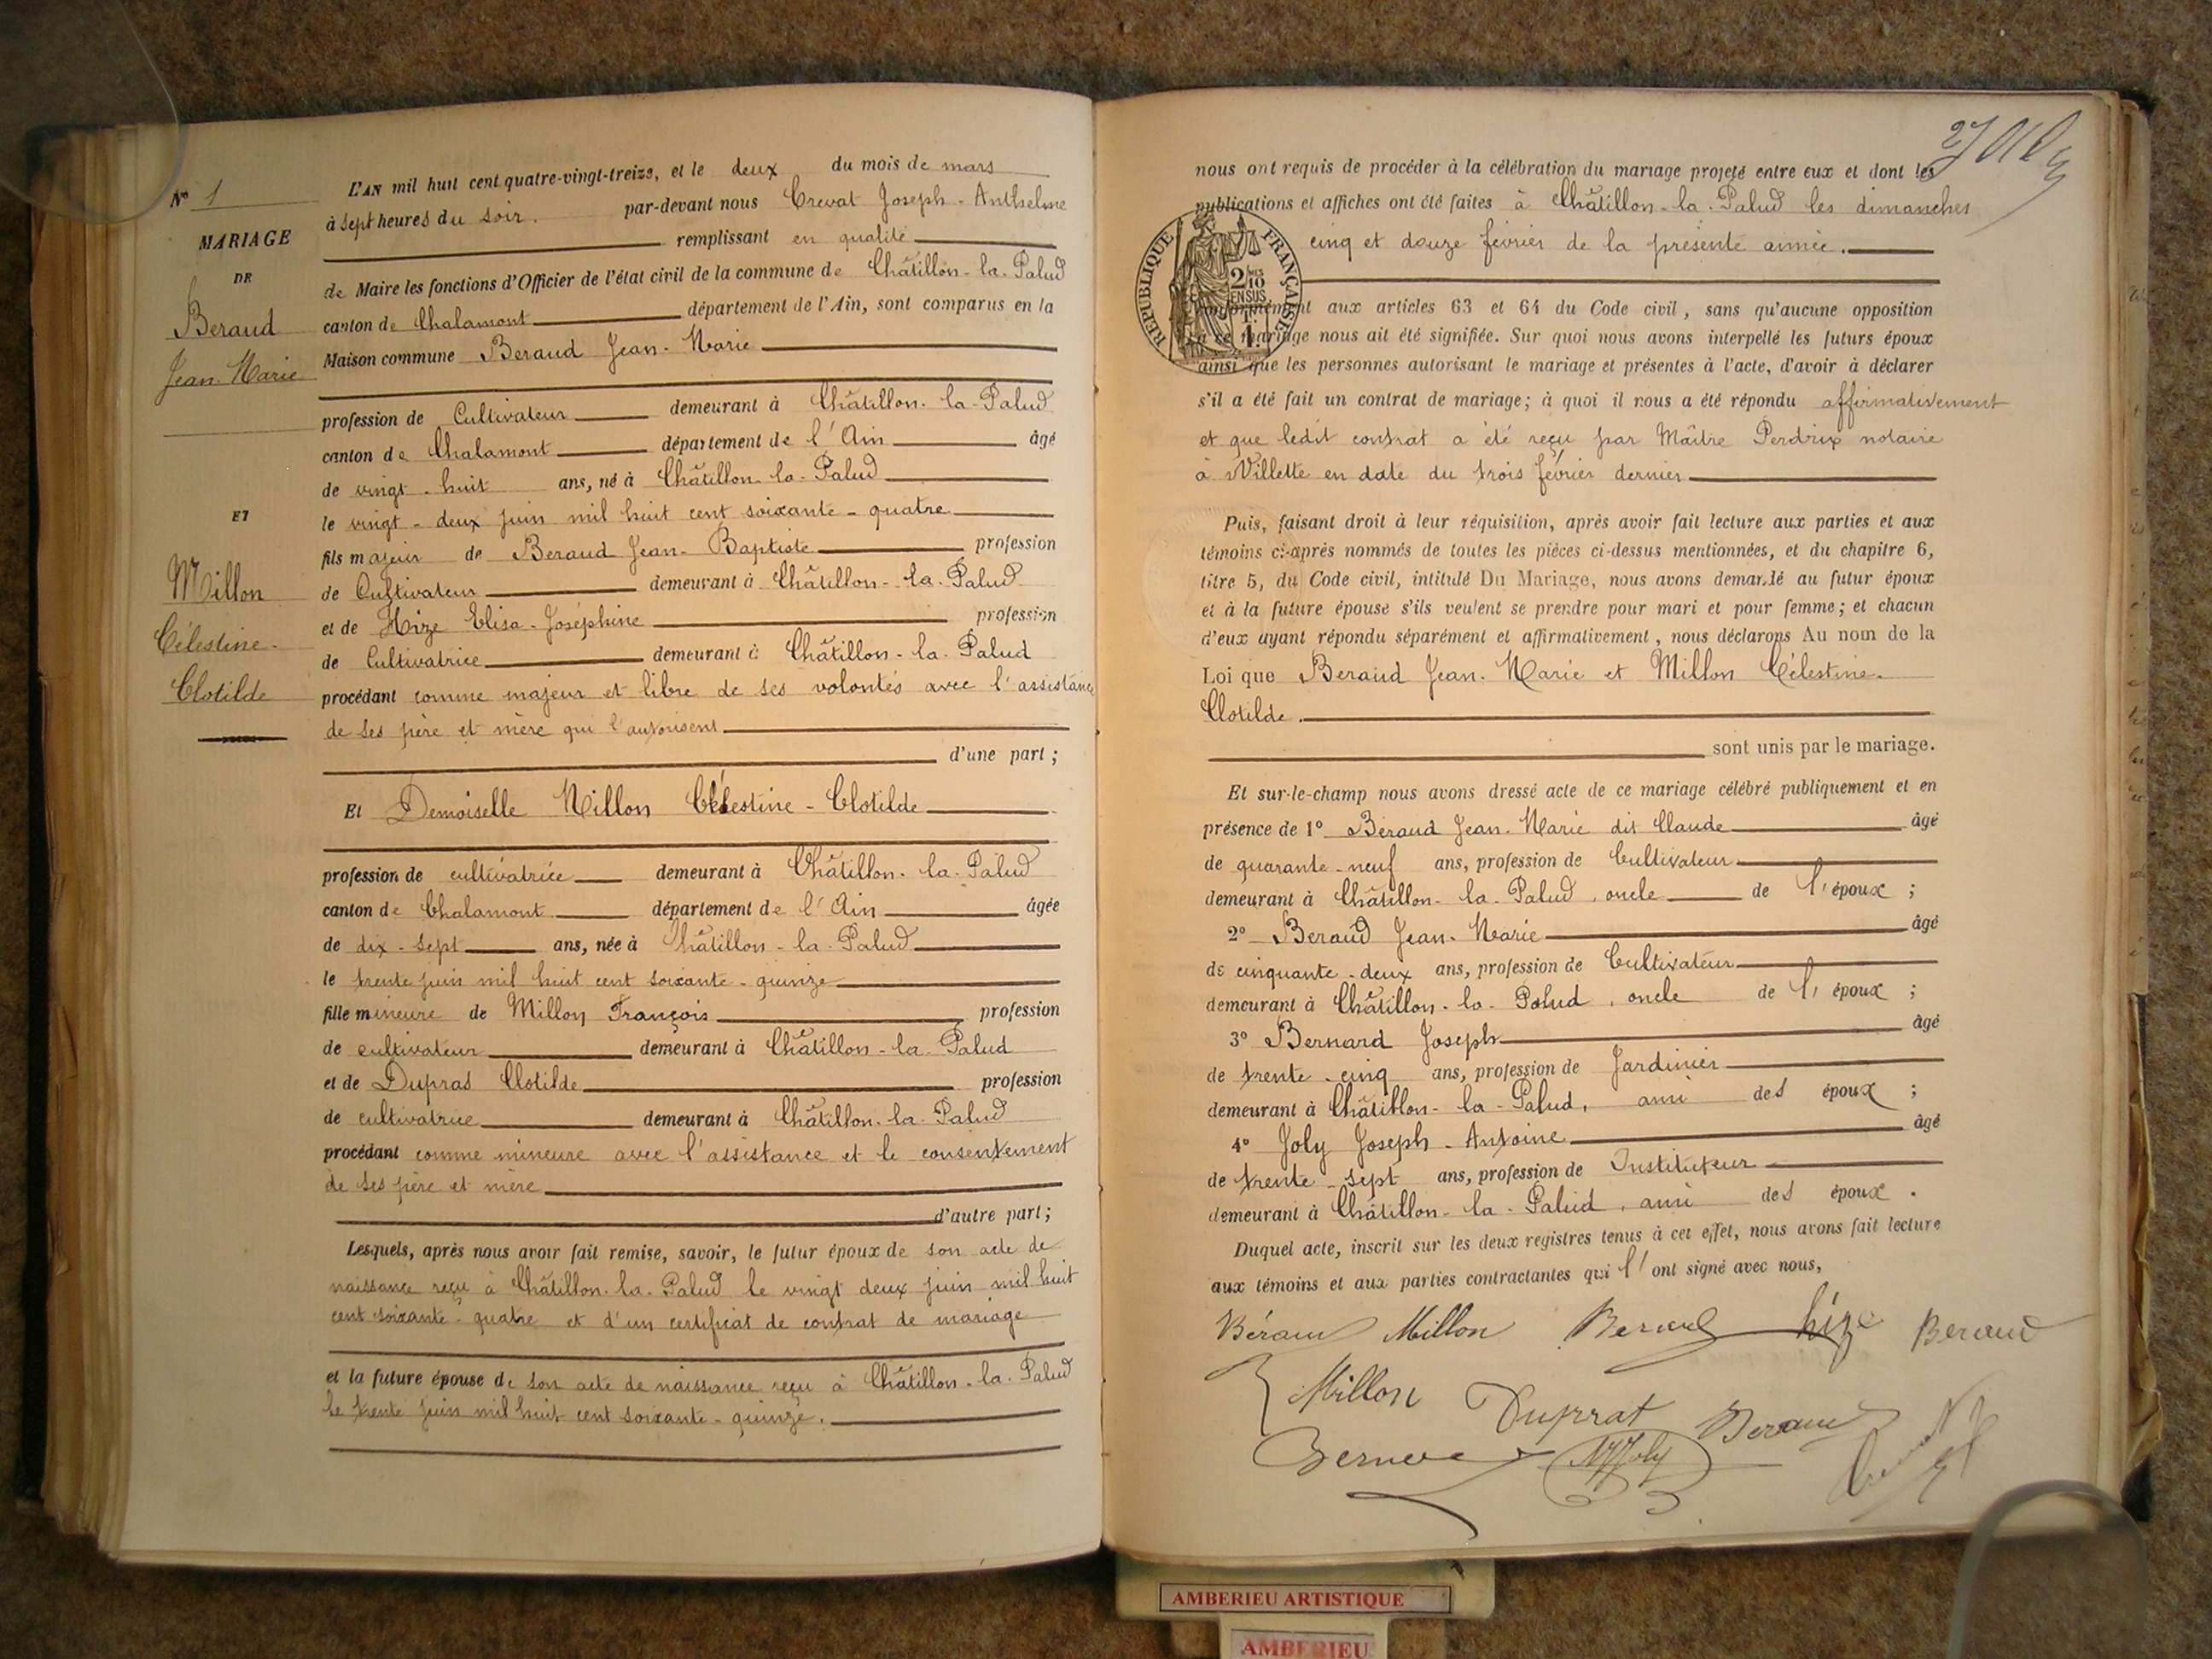 N° 1
MARIAGE
DE
Beraud
Jean-Marie
ET
Millon
Célestine-
Clotilde
L'AN mil huit cent quatre-vingt-treize, et le deux du mois de mars
à sept heures du soir. par-devant nous Crevat Joseph-Anthelme
remplissant en qualité
de Maire les fonctions d'Officier de l'état civil de la commune de Châtillon-la-Palud
canton de Chalamont département de l'Ain, sont comparus en la
Maison commune Beraud Jean-Marie
profession de Cultivateur demeurant à Châtillon-la-Palud
canton de Chalamont département de l'Ain âgé
de vingt-huit ans, né à Châtillon-la-Palud
le vingt-deux juin mil huit cent soixante-quatre
fils majeur de Beraud Jean-Baptiste profession
de Cultivateur demeurant à Châtillon-la-Palud
et de Hize Elisa-Joséphine profession
de Cultivatrice demeurant à Châtillon-la-Palud
procédant comme majeur et libre de ses volontés avec l'assistance
de ses père et mère qui l'autorisent
d'une part ;
Et Demoiselle Millon Célestine-Clotilde
profession de cultivatrice demeurant à Châtillon-la-Palud
canton de Chalamont département de l'Ain âgée
de dix-sept ans, née à Châtillon-la-Palud
le trente juin mil huit cent soixante-quinze
fille mineure de Millon François profession
de cultivateur demeurant à Châtillon-la-Palud
et de Dupras Clotilde profession
de cultivatrice demeurant à Châtillon-la-Palud
procédant comme mineure avec l'assistance et le consentement
de ses père et mère
d'autre part ;
Lesquels, après nous avoir fait remise, savoir, le futur époux de son acte de
naissance reçu à Châtillon-la-Palud le vingt deux juin mil huit
cent soixante-quatre et d'un certificat de contrat de mariage
et la future épouse de son acte de naissance reçu à Châtillon-la-Palud
le trente juin mil huit cent soixante-quinze.
27
nous ont requis de procéder à la célébration du mariage projeté entre eux et dont les
publications et affiches ont été faites à Châtillon-la-Palud les dimanches
cinq et douze février de la présente année.
RÉPUBLIQUE FRANÇAISE
2/10 EN SUS
conformément aux articles 63 et 64 du Code civil, sans qu'aucune opposition
à ce mariage nous ait été signifiée. Sur quoi nous avons interpellé les futurs époux
ainsi que les personnes autorisant le mariage et présentes à l'acte, d'avoir à déclarer
s'il a été fait un contrat de mariage; à quoi il nous a été répondu affirmativement
et que ledit contrat a été reçu par Maître Perdrix notaire
à Villette en date du trois février dernier
Puis, faisant droit à leur réquisition, après avoir fait lecture aux parties et aux
témoins ci-après nommés de toutes les pièces ci-dessus mentionnées, et du chapitre 6,
titre 5, du Code civil, intitulé Du Mariage, nous avons demandé au futur époux
et à la future épouse s'ils veulent se prendre pour mari et pour femme; et chacun
d'eux ayant répondu séparément et affirmativement, nous déclarons Au nom de la
Loi que Beraud Jean-Marie et Millon Célestine-
Clotilde.
sont unis par le mariage.
Et sur-le-champ nous avons dressé acte de ce mariage célébré publiquement et en
présence de 1° Béraud Jean-Marie dit Claude âgé
de quarante-neuf ans, profession de Cultivateur
demeurant à Châtillon-la-Palud, oncle de l'époux ;
2° Beraud Jean-Marie âgé
de cinquante-deux ans, profession de Cultivateur
demeurant à Châtillon-la-Palud, oncle de l'époux ;
3° Bernard Joseph âgé
de trente-cinq ans, profession de Jardinier
demeurant à Châtillon-la-Palud, ami des époux ;
4° Joly Joseph-Antoine âgé
de trente-sept ans, profession de Instituteur
demeurant à Châtillon-la-Palud, ami des époux.
Duquel acte, inscrit sur les deux registres tenus à cet effet, nous avons fait lecture
aux témoins et aux parties contractantes qui l'ont signé avec nous,
Béraud Millon Beraud hize Beraud
Millon Duprat Beraud
Joly
AMBERIEU ARTISTIQUE
AMBERIEU